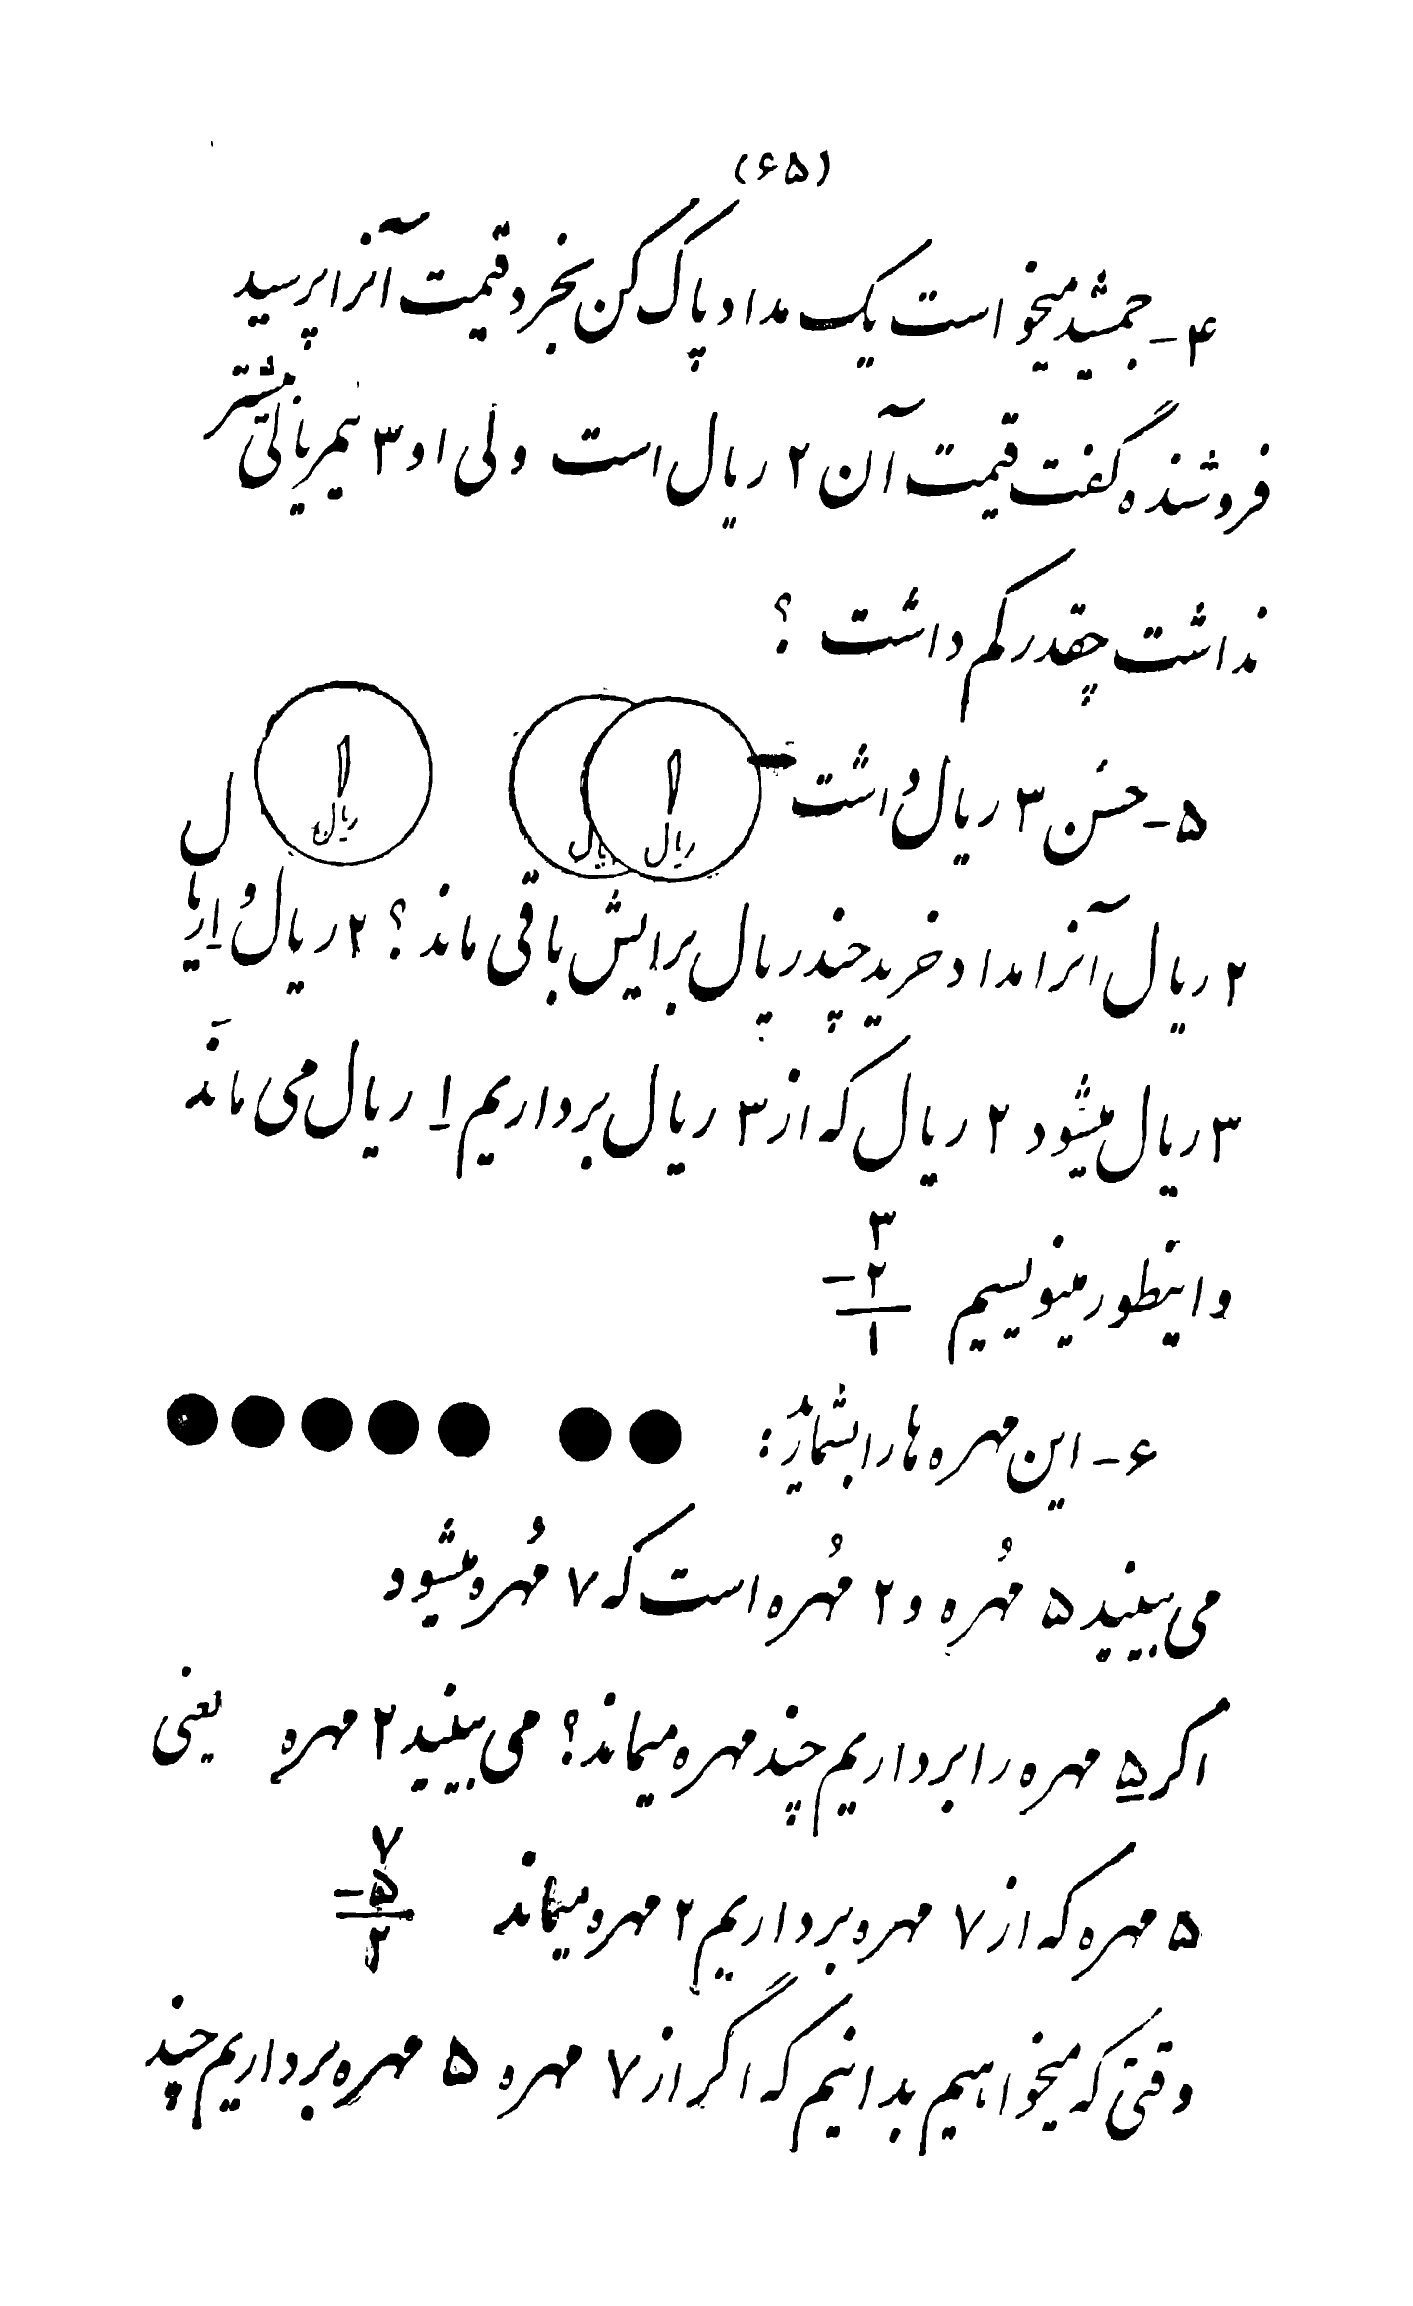 (۶۵)
۴- جمشید میخواست یک مداد پاک کن بخرد قیمت آنرا پرسید
فروشنده گفت قیمت آن ۲ ریال است ولی او ۳ نیم ریالی بیشتر
نداشت چقدر کم داشت ؟
۵- حسن ۳ ریال داشت
۱ ریال
ریال
۱ ریال
۲ ریال آنرا مداد خرید چند ریال برایش باقی ماند ؟ ۲ ریال و ۱ ریال
۳ ریال میشود ۲ ریال که از ۳ ریال برداریم ۱ ریال می ماند
و اینطور مینویسیم
۳
-۲
۱
۶- این مهره ها را بشمارید :
می بینید ۵ مُهره و ۲ مُهره است که ۷ مُهره میشود
اگر ۵ مهره را برداریم چند مهره میماند؟ می بینید ۲ مهره یعنی
۵ مهره که از ۷ مهره برداریم ۲ مهره میماند
۷
-۵
۲
وقتی که میخواهیم بدانیم که اگر از ۷ مهره ۵ مهره برداریم چند